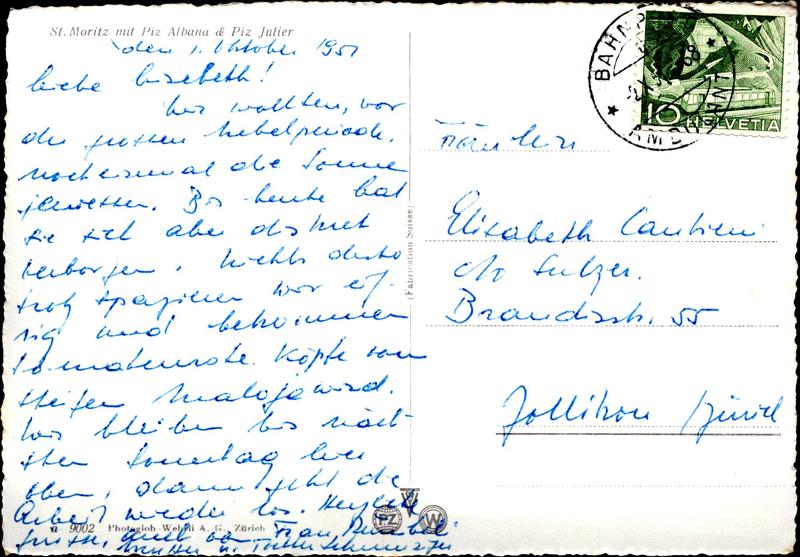 St. Moritz mit Piz Albana & Piz Julier
den 1. Oktober 1951
Liebe Lisebeth!
Wir wollten, vor
der grossen Nebelperiode,
nocheinmal die Sonne
geniessen. Bis heute hat
sie sich aber diskret
verborgen. Nichts desto
trotz spazieren wir eif-
rig und bekommen
tomatenrote Köpfe vom
steifen Malojawind.
Wir bleiben bis näch-
sten Sonntag hier
oben, dann geht die
Arbeit wieder los. Herzliche
Grüsse, auch von Frau
n 9002 Photoglob-Wehrli A. G., Zürich
(Fabrication Suisse)
PZ
W
BAHNPOST
AMBULANT
10 HELVETIA
Fräulein
Elisabeth Cantieni
c/o Sulzer.
Brandisstr. 55
Zollikon / Zürich